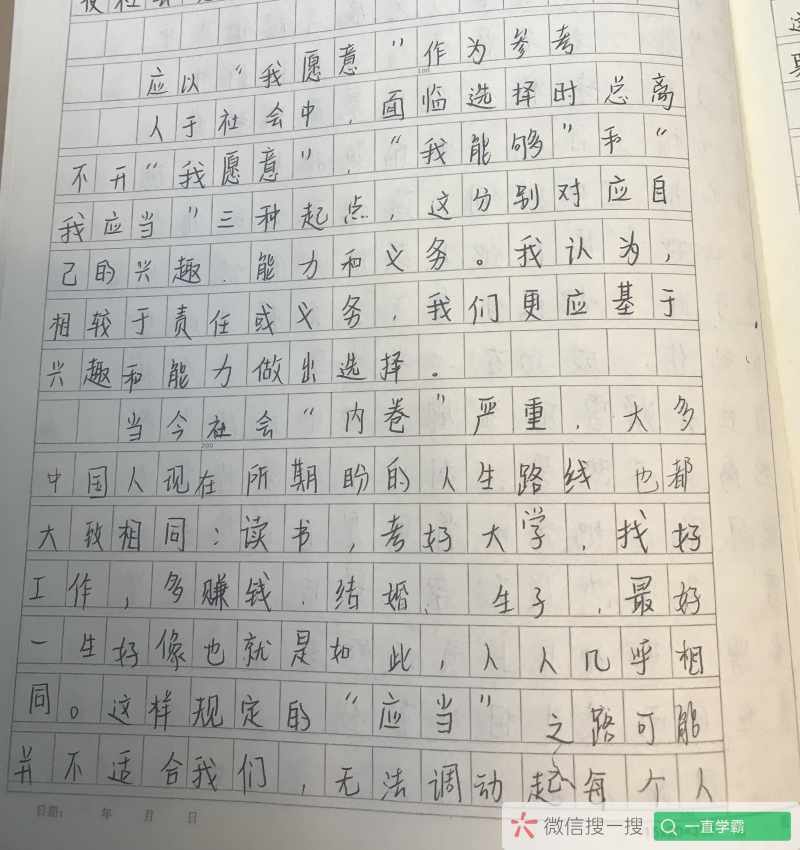 应以“我愿意”作为参考
100
人于社会中，面临选择时总离
不开“我愿意”、“我能够”和“
我应当”三种起点，这分别对应自
己的兴趣、能力和义务。我认为，
相较于责任或义务，我们更应基于
兴趣和能力做出选择。
当今社会“内卷”严重，大多
200
中国人现在所期盼的人生路线也都
大致相同：读书，考好大学，找好
工作，多赚钱、结婚、生子，最好
一生好像也就是如此，人人几乎相
同。这样规定的“应当”之路可能
并不适合我们，无法调动起每个人
日期： 年 月 日
微信搜一搜 一直学霸